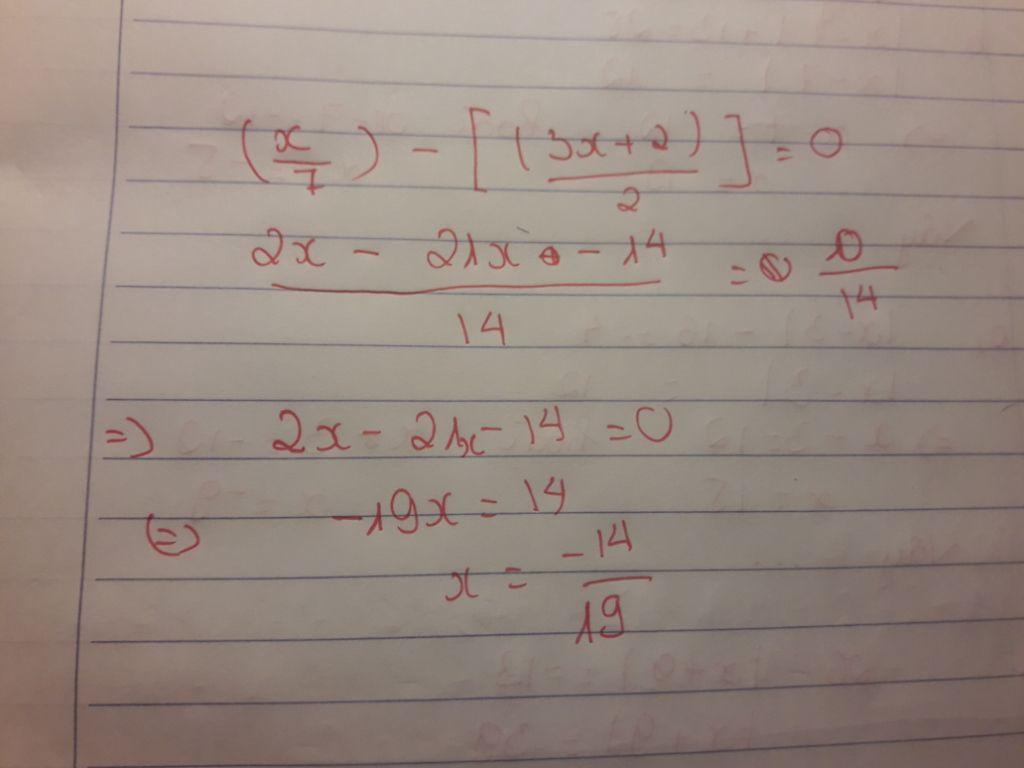 (x/7) - [(3x+2)/2] = 0
(2x - 21x - 14)/14 = 0/14
=> 2x - 21x - 14 = 0
(=) -19x = 14
x = -14/19